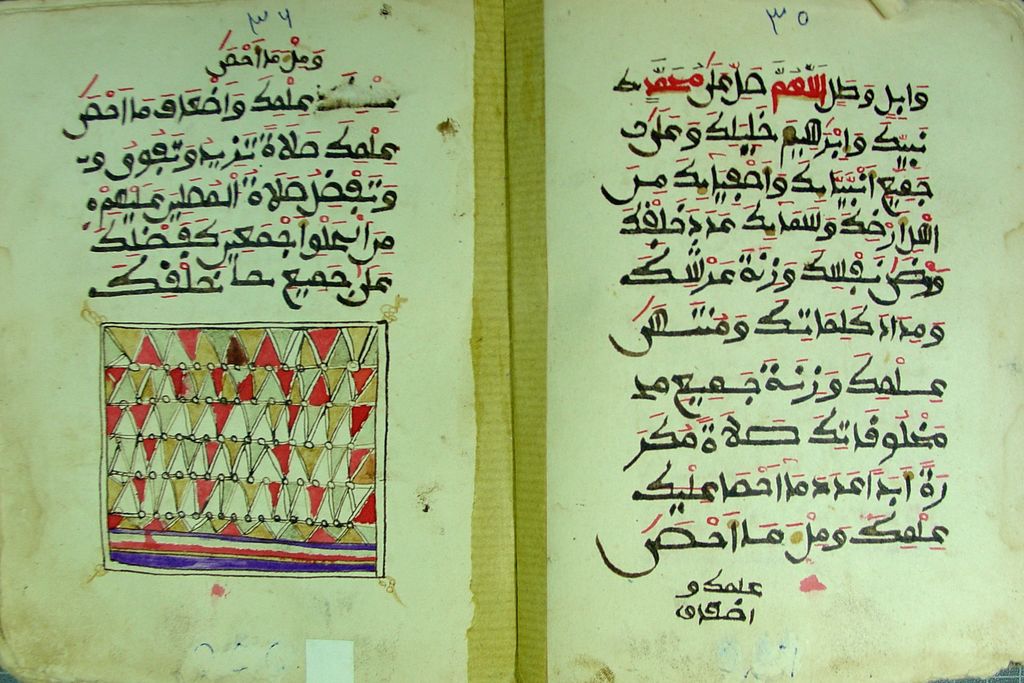 ٣٥
وابل وطل اللهم صل على محمد
نبيك وابراهيم خليلك وعلى
جميع انبيايك واصفيايك من
اهل ارضك وسمايك عدد خلقك
ورضى نفسك وزنة عرشك
ومداد كلماتك ومنتهى
علمك وزنة جميع
مخلوقاتك صلاة مكر
رة ابدا عدد ما احصا
علمك ومل ما احصى
علمك و
اضعاف
٣٦
ومل ما احصى
علمك واضعاف ما احصى
علمك صلاة تزيد وتفوق و
وتفضل صلاة المصلين عليهم
من اجمعين كفضلك
على جميع خلقك